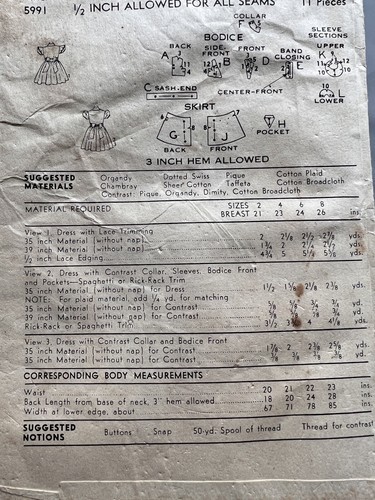 5991 ½ INCH ALLOWED FOR ALL SEAMS 11 Pieces
COLLAR
F
BODICE
SLEEVE SECTIONS
BACK SIDE-FRONT FRONT BAND CLOSING UPPER
A B D E K
C SASH-END CENTER-FRONT
L LOWER
SKIRT
G J H POCKET
BACK FRONT
3 INCH HEM ALLOWED
SUGGESTED MATERIALS
Organdy Dotted Swiss Pique Cotton Plaid
Chambray Sheer Cotton Taffeta Cotton Broadcloth
Contrast: Pique, Organdy, Dimity, Cotton Broadcloth
MATERIAL REQUIRED
SIZES 2 4 6 8
BREAST 21 23 24 26 ins.
View 1, Dress with Lace Trimming
35 inch Material (without nap) 2 2⅛ 2½ 2⅝ yds.
39 inch Material (without nap) 1¾ 2 2¼ 2½ yds.
½ inch Lace Edging 4¾ 5 5⅛ 5⅜ yds.
View 2, Dress with Contrast Collar, Sleeves, Bodice Front
and Pockets—Spaghetti or Rick-Rack Trim
35 inch Material (without nap) for Dress 1½ 1⅝ 2⅛ 2⅜ yds.
NOTE: For plaid material, add ¼ yd. for matching
35 inch Material (without nap) for Contrast yds.
39 inch Material (without nap) for Contrast yds.
Rick-Rack or Spaghetti Trim 3½ 4 4⅛ yds.
View 3, Dress with Contrast Collar and Bodice Front
35 inch Material (without nap) for Contrast yds.
35 inch Material (without nap) for Contrast yds.
CORRESPONDING BODY MEASUREMENTS
Waist 20 21 22 23 ins.
Back Length from base of neck, 3" hem allowed 18 20 24 28 ins.
Width at lower edge, about 67 71 78 85 ins.
SUGGESTED NOTIONS
Buttons Snap 50-yd. Spool of thread Thread for contrast